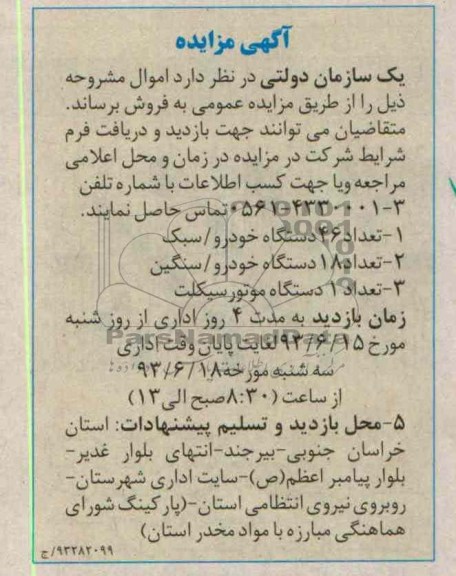 آگهی مزایده
یک سازمان دولتی در نظر دارد اموال مشروحه
ذیل را از طریق مزایده عمومی به فروش برساند.
متقاضیان می توانند جهت بازدید و دریافت فرم
شرایط شرکت در مزایده در زمان و محل اعلامی
مراجعه ویا جهت کسب اطلاعات با شماره تلفن
۳-۴۳۳۰۱۰۱-۰۵۶۱ تماس حاصل نمایند.
۱-تعداد۴۶دستگاه خودرو/سبک
۲-تعداد۱۸دستگاه خودرو/سنگین
۳-تعداد۱ دستگاه موتورسیکلت
زمان بازدید به مدت ۴ روز اداری از روز شنبه
مورخ ۹۳/۶/۱۵ لغایت پایان وقت اداری
سه شنبه مورخه۹۳/۶/۱۸
از ساعت (۸:۳۰صبح الی۱۳)
۵-محل بازدید و تسلیم پیشنهادات: استان
خراسان جنوبی-بیرجند-انتهای بلوار غدیر-
بلوار پیامبر اعظم(ص)-سایت اداری شهرستان-
روبروی نیروی انتظامی استان-(پارکینگ شورای
هماهنگی مبارزه با مواد مخدر استان)
۹۳۲۸۲۰۹۹/ج
ParsNamadData